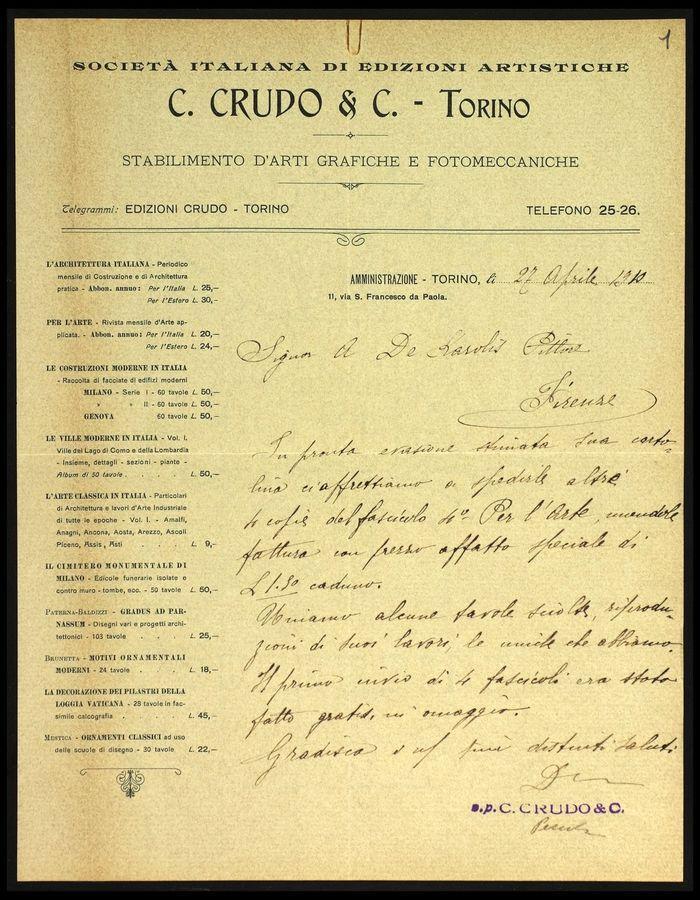 1
SOCIETÀ ITALIANA DI EDIZIONI ARTISTICHE
C. CRUDO & C. - TORINO
STABILIMENTO D'ARTI GRAFICHE E FOTOMECCANICHE
Telegrammi: EDIZIONI CRUDO - TORINO
TELEFONO 25-26.
L'ARCHITETTURA ITALIANA - Periodico
mensile di Costruzione e di Architettura
pratica - Abbon. annuo: Per l'Italia L. 25,—
Per l'Estero L. 30,—
PER L'ARTE - Rivista mensile d'Arte ap-
plicata. - Abbon. annuo: Per l'Italia L. 20,—
Per l'Estero L. 24,—
LE COSTRUZIONI MODERNE IN ITALIA
- Raccolta di facciate di edifizi moderni
MILANO - Serie I - 60 tavole L. 50,—
» » II - 60 tavole L. 50,—
GENOVA 60 tavole L. 50,—
LE VILLE MODERNE IN ITALIA - Vol. I.
Ville del Lago di Como e della Lombardia
- Insieme, dettagli - sezioni - piante -
Album di 50 tavole . . . . L. 50,—
L'ARTE CLASSICA IN ITALIA - Particolari
di Architettura e lavori d'Arte Industriale
di tutte le epoche - Vol. I. - Amalfi,
Anagni, Ancona, Aosta, Arezzo, Ascoli
Piceno, Assis, Asti . . . . L. 9,—
IL CIMITERO MONUMENTALE DI
MILANO - Edicole funerarie isolate e
contro muro - tombe, ecc. - 50 tavole L. 50,—
PATERNA-BALDIZZI - GRADUS AD PAR-
NASSUM - Disegni vari e progetti archi-
tettonici - 103 tavole . . . L. 25,—
BRUNETTA - MOTIVI ORNAMENTALI
MODERNI - 24 tavole . . . L. 18,—
LA DECORAZIONE DEI PILASTRI DELLA
LOGGIA VATICANA - 28 tavole in fac-
simile calcografia . . . . L. 45,—
MESTICA - ORNAMENTI CLASSICI ad uso
delle scuole di disegno - 30 tavole L. 22,—
AMMINISTRAZIONE - TORINO, li 27 Aprile 1910
11, via S. Francesco da Paola.
Signor A De Karolis Pittore
Firenze
In pronta evasione stimata sua carto-
lina ci affrettiamo a spedirle altre
4 copie del fascicolo 4º Per l'Arte, unendole
fattura con prezzo affatto speciale di
L 1.50 caduno.
Uniamo alcune tavole sciolte, riprodu-
zioni di suoi lavori, le uniche che abbiamo.
Il primo invio di 4 fascicoli era stato
fatto gratis, in omaggio.
Gradisca distinti saluti
s.p. C. CRUDO & C.